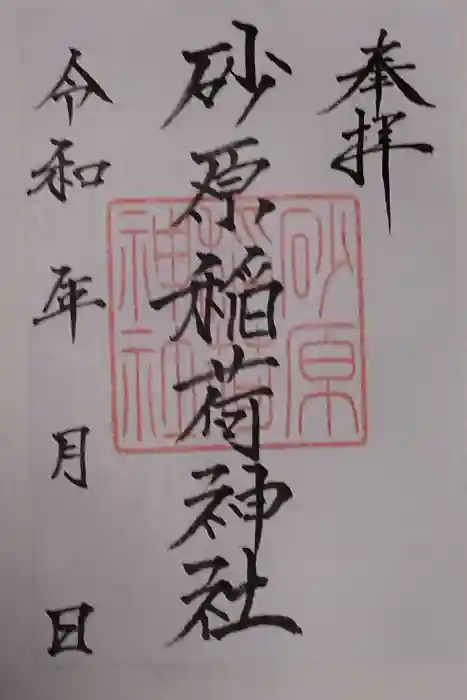 奉拝
砂原稲荷神社
令和 年 月 日
砂原
稲荷
神社